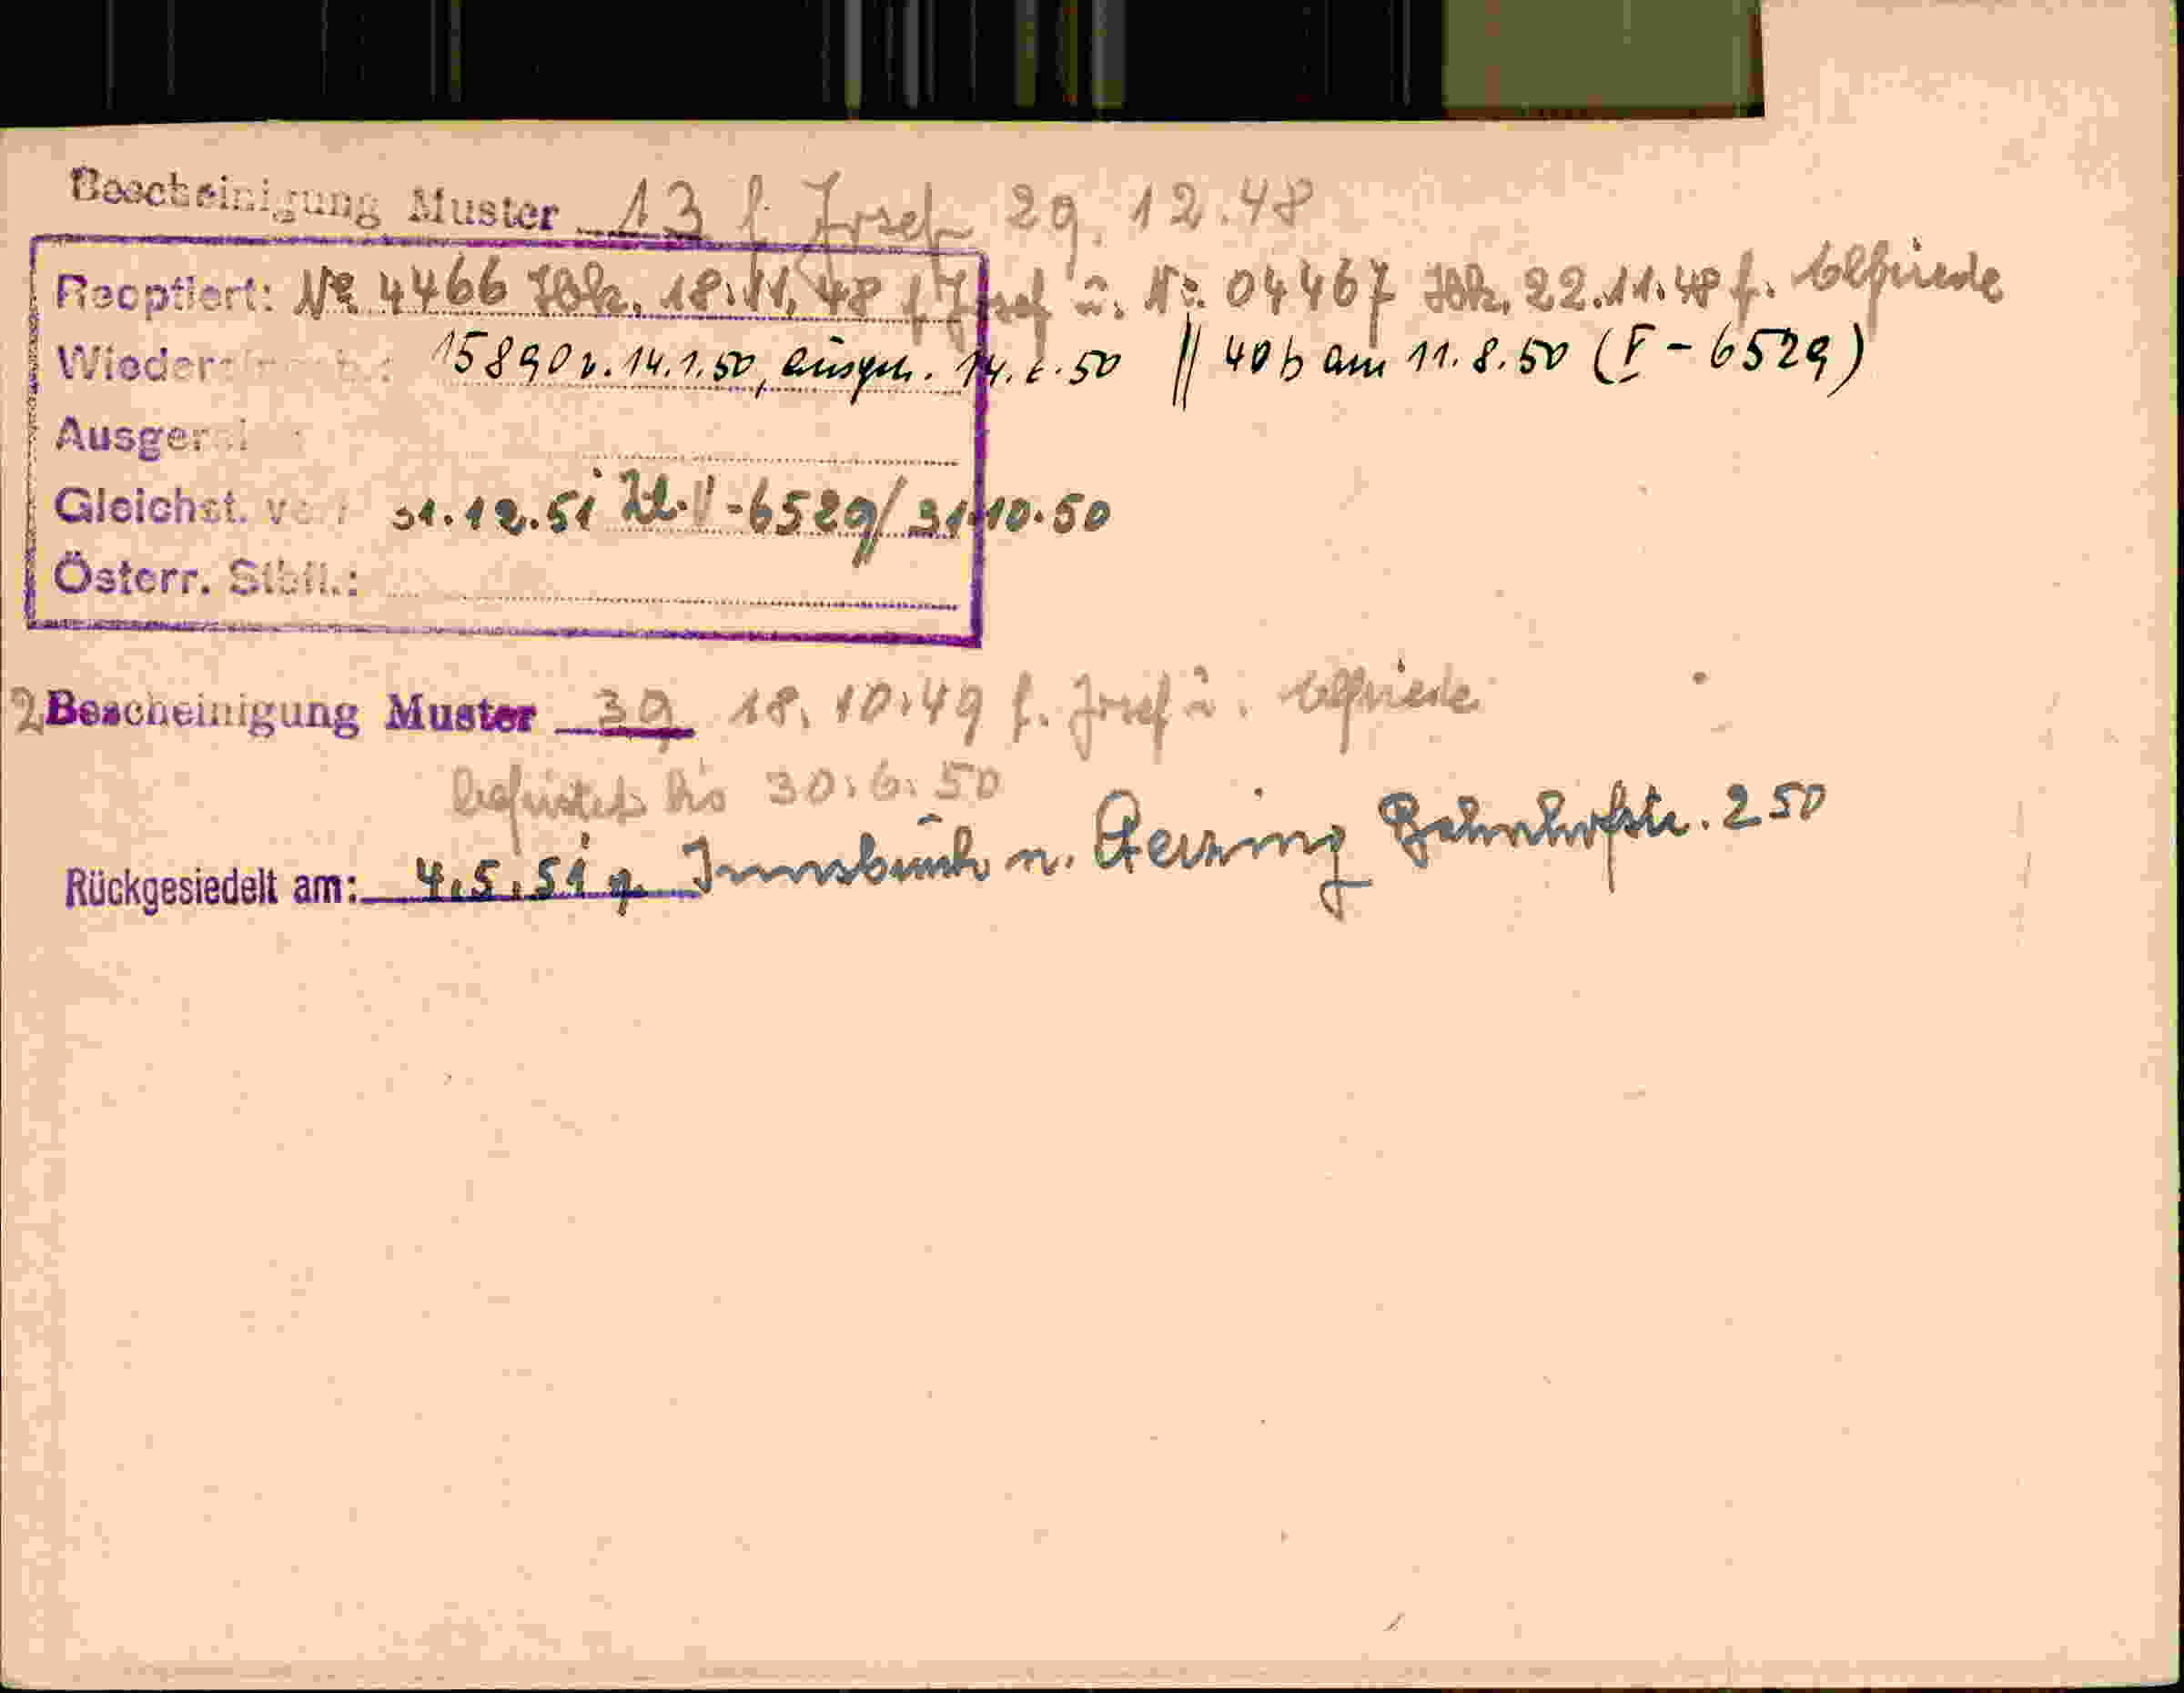 Bescheinigung Muster 13 f. Josef 29.12.48
Reoptiert: No 4466 Ibk. 18.11.48 f. Josef u. No. 04467 Ibk. 22.11.48 f. Elfriede
15890 v. 14.1.50, 14. .50 || 40b am 11.8.50 (F-6529)
Ausger
Gleichst. 31.12.51 Zl. -6529/31.10.50
Österr. Stbft.:
2 Bescheinigung Muster 39 18.10.49 f. Josef u. Elfriede
befristet bis 30.6.50
Rückgesiedelt am: 4.5.51 Innsbruck n. Bahnhofstr. 250